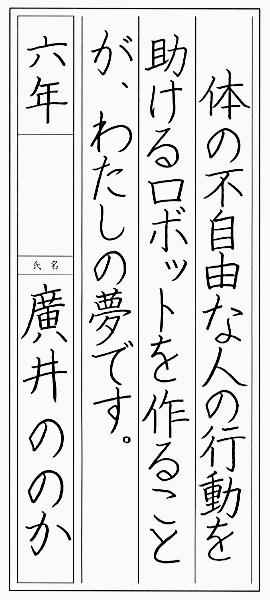 体の不自由な人の行動を
助けるロボットを作ること
が、わたしの夢です。
六年
氏名
廣井ののか